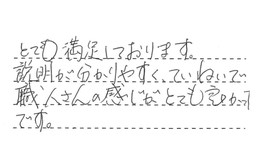 とても満足しております。
説明が分かりやすく、ていねいで
職人さんの感じがとても良かった
です。